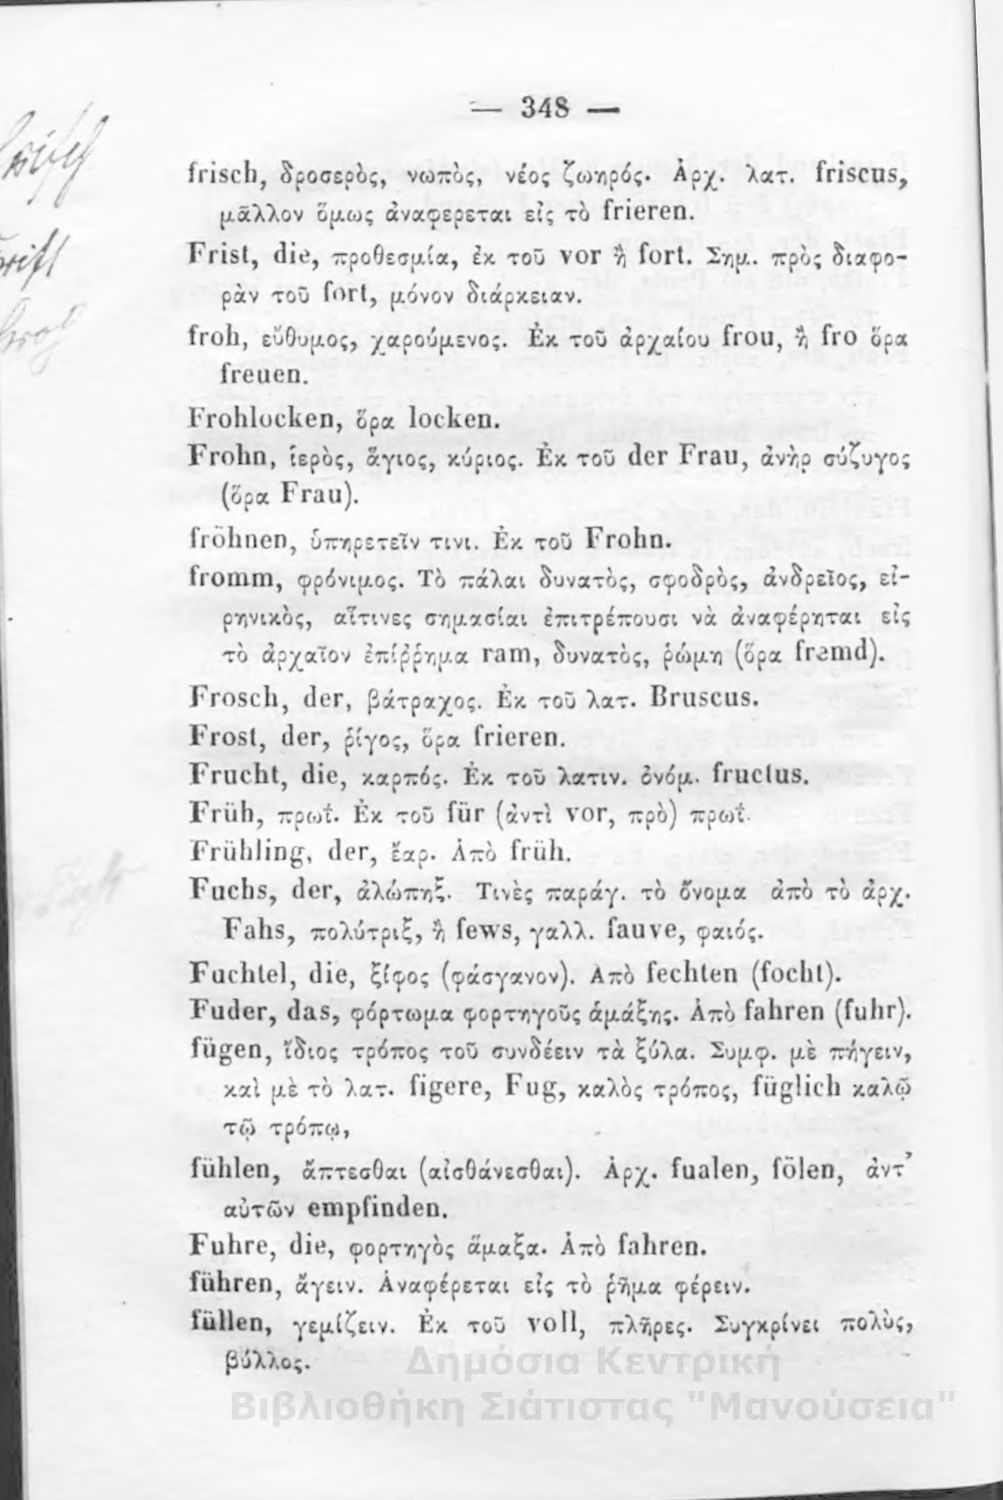 — 348 —
frisch, δροσερὸς, νωπὸς, νέος ζωηρός. Ἀρχ. λατ. friscus,
μᾶλλον ὅμως ἀναφερεται εἰς τὸ frieren.
Frist, die, προθεσμία, ἐκ τοῦ vor ἢ fort. Σημ. πρὸς διαφο-
ρὰν τοῦ fort, μόνον διάρκειαν.
froh, εὔθυμος, χαρούμενος. Ἐκ τοῦ ἀρχαίου frou, ἢ fro ὅρα
freuen.
Frohlocken, ὅρα locken.
Frohn, ἱερὸς, ἅγιος, κύριος. Ἐκ τοῦ der Frau, ἀνὴρ σύζυγος
(ὅρα Frau).
fröhnen, ὑπηρετεῖν τινι. Ἐκ τοῦ Frohn.
fromm, φρόνιμος. Τὸ πάλαι δυνατὸς, σφοδρὸς, ἀνδρεῖος, εἰ-
ρηνικὸς, αἵτινες σημασίαι ἐπιτρέπουσι νὰ ἀναφέρηται εἰς
τὸ ἀρχαῖον ἐπίῤῥημα ram, δυνατὸς, ῥώμη (ὅρα fremd).
Frosch, der, βάτραχος. Ἐκ τοῦ λατ. Bruscus.
Frost, der, ῥίγος, ὅρα frieren.
Frucht, die, καρπός. Ἐκ τοῦ λατιν. ὀνόμ. fructus.
Früh, πρωΐ. Ἐκ τοῦ für (ἀντὶ vor, πρὸ) πρωΐ.
Frühling, der, ἔαρ. Ἀπὸ früh.
Fuchs, der, ἀλώπηξ. Τινὲς παράγ. τὸ ὄνομα ἀπὸ τὸ ἀρχ.
Fahs, πολύτριξ, ἢ fews, γαλλ. fauve, φαιός.
Fuchtel, die, ξίφος (φάσγανον). Ἀπὸ fechten (focht).
Fuder, das, φόρτωμα φορτηγοῦς ἁμάξης. Ἀπὸ fahren (fuhr).
fügen, ἴδιος τρόπος τοῦ συνδέειν τὰ ξύλα. Συμφ. μὲ πήγειν,
καὶ μὲ τὸ λατ. figere, Fug, καλὸς τρόπος, füglich καλῷ
τῷ τρόπῳ,
fühlen, ἅπτεσθαι (αἰσθάνεσθαι). Ἀρχ. fualen, fölen, ἀντ'
αὐτῶν empfinden.
Fuhre, die, φορτηγὸς ἅμαξα. Ἀπὸ fahren.
führen, ἄγειν. Ἀναφέρεται εἰς τὸ ῥῆμα φέρειν.
füllen, γεμίζειν. Ἐκ τοῦ voll, πλῆρες. Συγκρίνει πολὺς,
βύλλος.
Δημόσια Κεντρική
Βιβλιοθήκη Σιάτιστας "Μανούσεια"